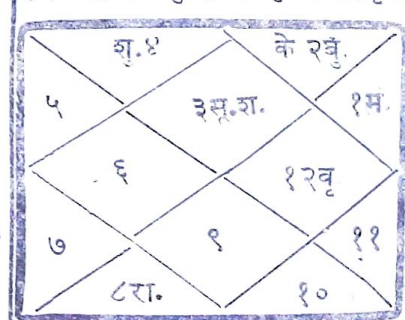 शु.४ के २बुं.
५ ३सू.श. १मं.
६ १२वृ
७ ९ ११
८रा. १०